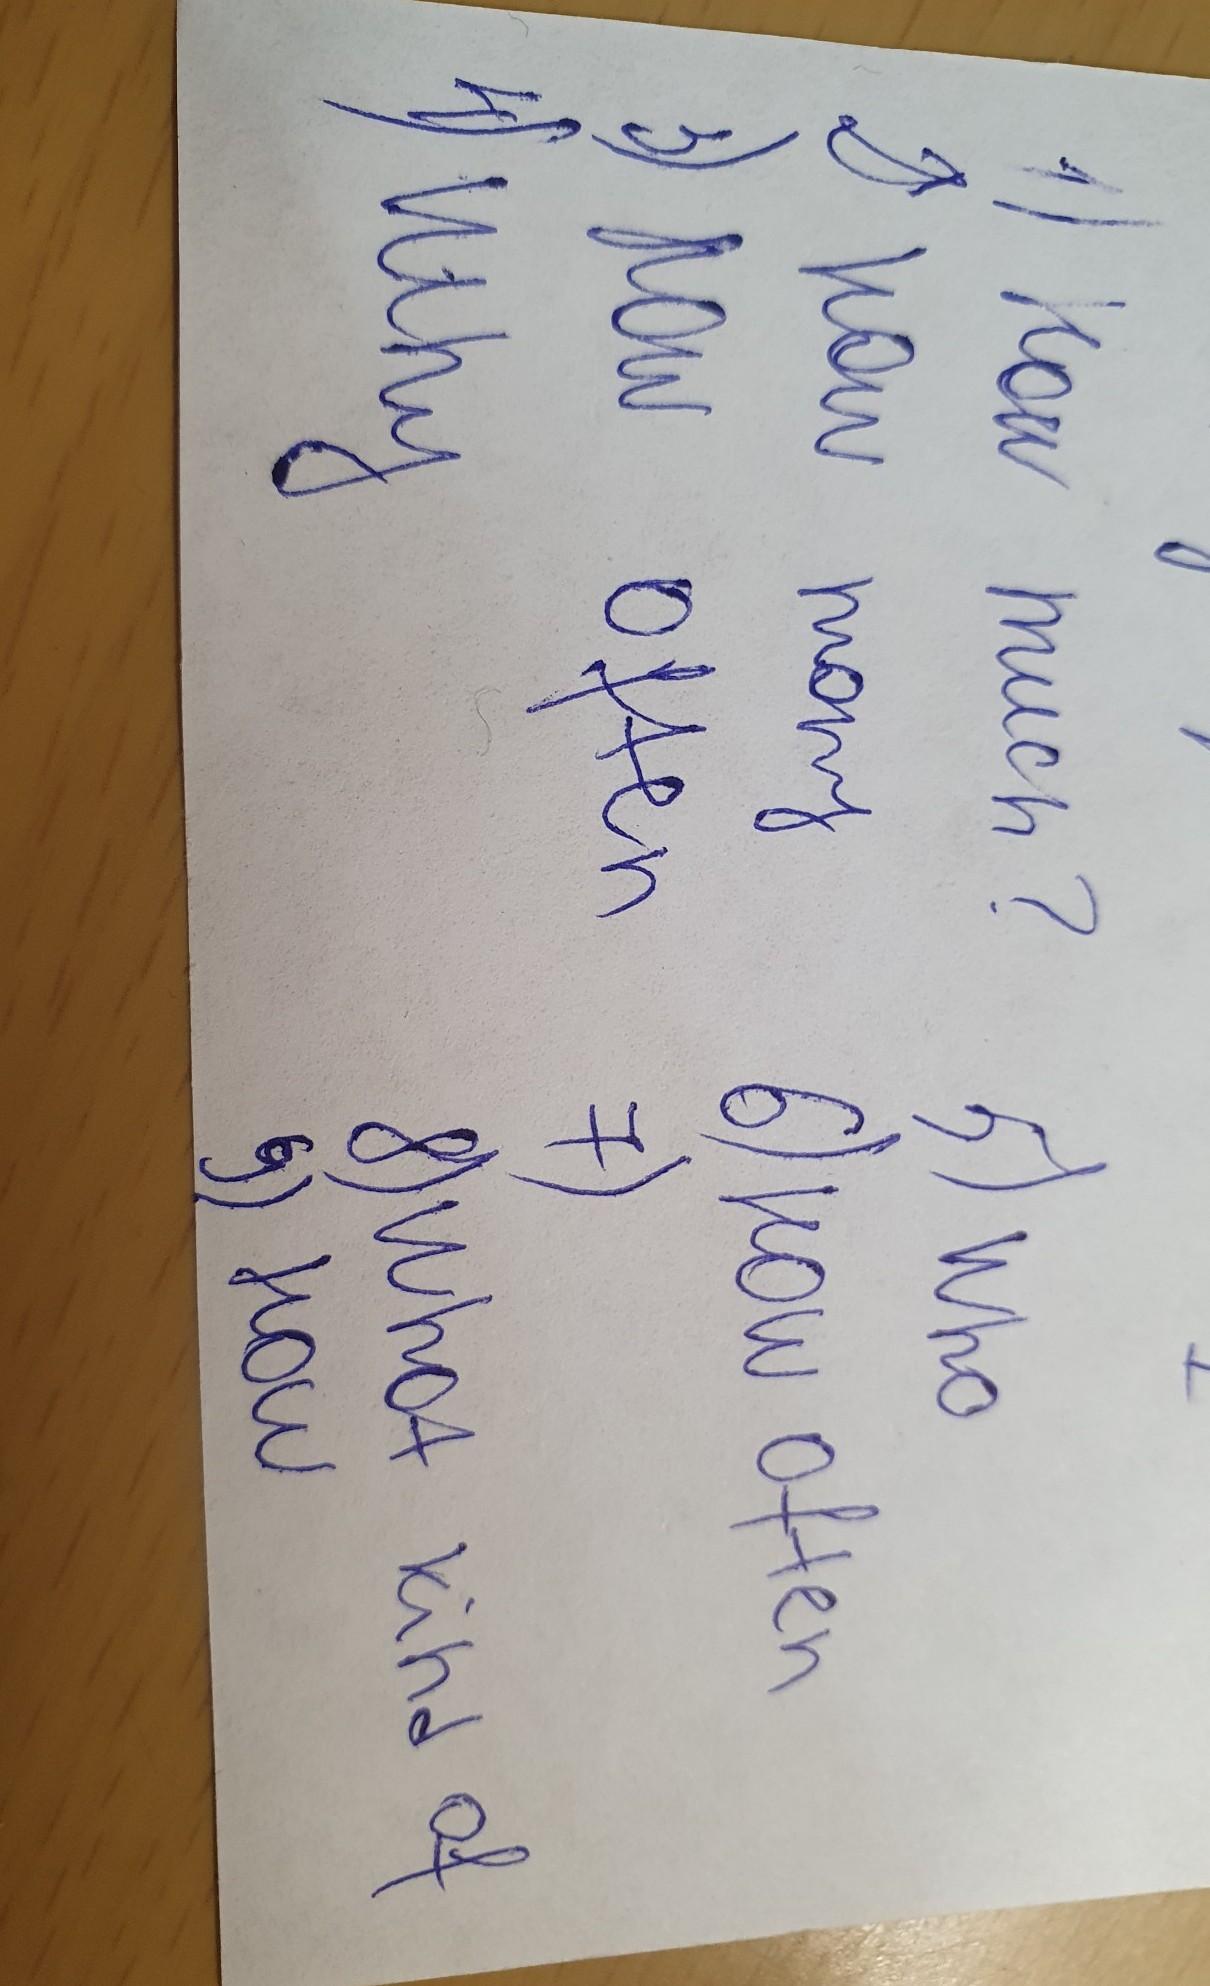 1) how much?
2) how many
3) how often
4) Why
5) Who
6) how often
7)
8) What kind of
9) how